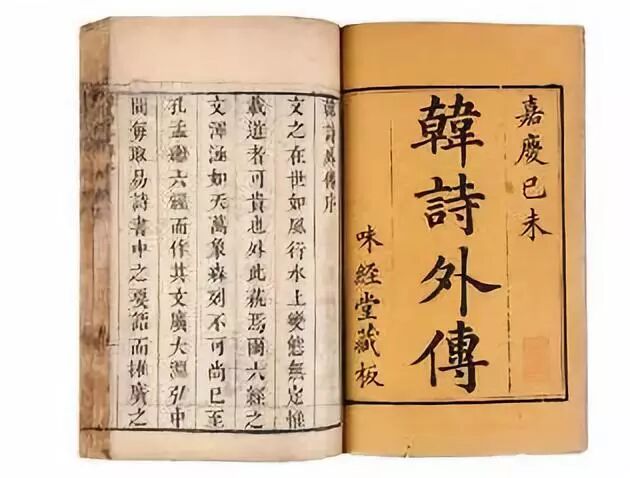 嘉慶己未
韓詩外傳
味經堂藏板
韓詩外傳序
文之在世如風行水上變態無定惟
載道者可貴也外此執焉爾六經之
文渾涵如天萬象森列不可尚已至
孔孟 六經而作其文廣大淵弘中
間每取易詩書中之要範而推廣之